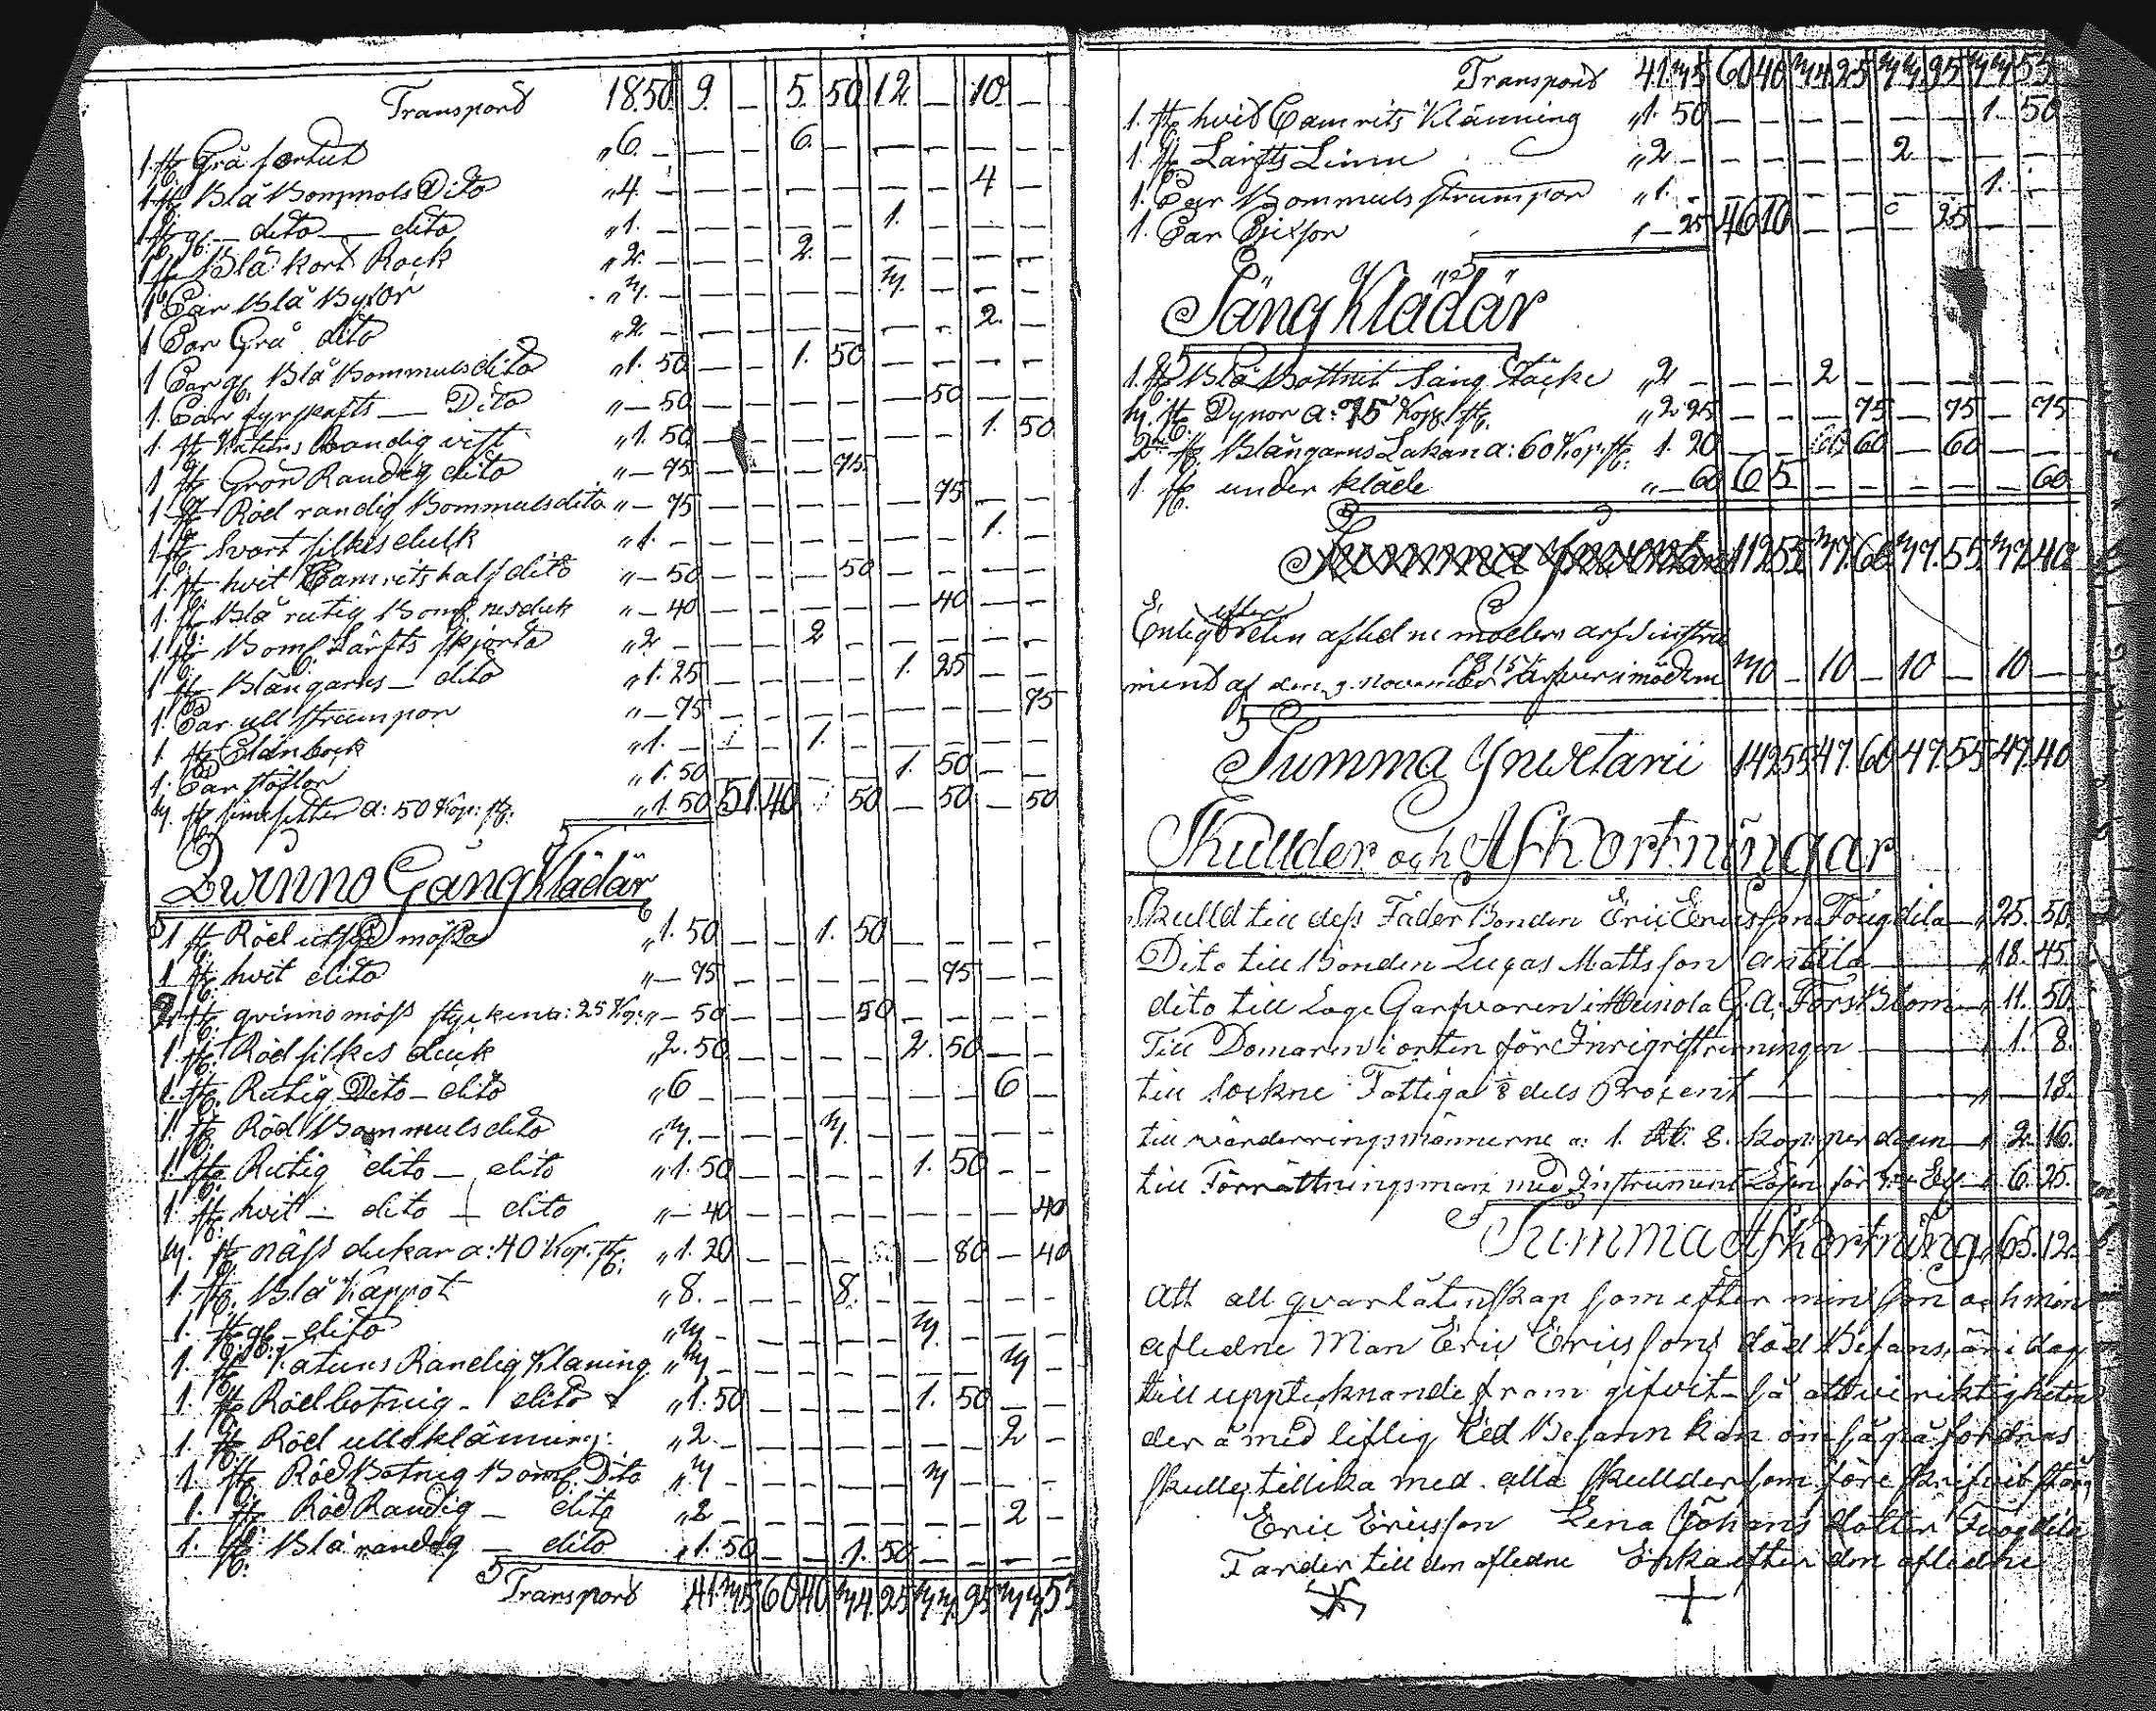 Transport 18 50 9. — 5. 50 12. — 10. —
1. st. Grå sortut „6. — — — 6. — — — — —
1 st. Blå Bommols Dito „4. — — — — — — — 4 —
1 st. gl. — dito — dito „1. — — — — — 1. — — —
1 st. Blå kort Rock „2. — — — 2. — — — — —
1 Par Blå Byxor „3. — — — — — 3. — — —
1 Par Grå dito „2. — — — — — — — 2. —
1 Par gl. Blå Bommulsdito „1. 50 — — 1. 50 — — — —
1. Par fyrskafts — Dito „— 50 — — — — — 50 — —
1. st. Katuns Randig vist „1. 50 — — — — — — 1. 50
1 st. Grön Randig dito „— 75 — — — 75 — — — —
1 st. Röd randig Bommulsdito „— 75 — — — — — 75 — —
1 st. Svart silkesduk „1. — — — — — — — 1. —
1. st. hvit Camrits half dito „— 50 — — — 50 — — — —
1. st. Blå rutig Boml. nesduk „— 40 — — — — — 40 — —
1. st. Boml. Lärfts skjorta „2 — — — 2 — — — — —
1 st. Blångarns — dito „1. 25 — — — — 1. 25 — —
1. Par ull strumpor „— 75 — — — — — — — 75
1. st. „1. — — — 1. — — — — —
1. Par töflor „1. 50 — — — — 1. 50 — —
3. st. a: 50 Kop: st. „1. 50 51. 40 50 — 50 — 50
Qwinno GångKlädär
1 st. Röd mössa „1. 50 — — 1. 50 — — — —
1 st. hvit dito „— 75 — — — — — 75 — —
2 st. qvinno möss styckena: 25 Kop: „— 50 — — — 50 — — — —
1. st. Röd silkes duk „2. 50 — — — — 2. 50 — —
1. st. Rutig Dito — dito „6 — — — — — — — 6 —
1. st. Röd Bommulsdito „3. — — — 3. — — — — —
1. st. Rutig dito — dito „1. 50 — — — — 1. 50 — —
1 st. hvit — dito — dito „— 40 — — — — — — — 40
3. st. näss dukar a: 40 Kop. st. „1. 20 — — — — — 80 — 40
1. st. Blå Kappot „8. — — — 8. — — — — —
1. st. gl. — dito „3 — — — — — 3. — — —
1. st. Katuns Randig Klaning „3 — — — — — — — 3 —
1. st. Rödbotnig — dito „1. 50 — — — — 1. 50 — —
1. st. Röd ullsklänning: „2. — — — — — — — 2 —
1. st. Röd Botnig Boml. Dito „3 — — — — — 3 — — —
1. st. Röd Randig — dito „2 — — — — — — — 2 —
1. st. Blå randig — dito „1. 50 — — 1. 50 — — — —
Transport 41. 35 60 40 34. 25 33. 95 33 55
Transport 41. 35 60 40 34. 25 33. 95 33 55
1. st. hvid Camrits Klänning „1. 50 — — — — — — 1. 50
1. st. Lärfts Linne „2 — — — — — 2 — — —
1. Par Bommuls strumpor „1. — — — — — — — 1. —
1. Par Bixsor „— 25 46 10 — — — 25 — —
SängKlädär
1. st. Blå Bottnit Säng Täcke „2 — — — 2 — — — — —
3. st. Dynor a: 75 Kop. st. „2 25 — — — 75 — 75 — 75
2 st. Blångarns Lakan a: 60 Kop. st. 1. 20 — — 60 — 60 — —
1. st. under kläde „— 60 6 5 — — — — — 60
Summa Inventarii 112 55 37. 60 37. 55 37 40
Enligt efter den aflidne modern arfsinstru
ment af den 9. November 1815 Arfver i mödern 30 — 10 — 10 — 10 —
Summa Inventarii 142 55 47. 60 47. 55 47. 40
Skullder och Afkortningar
Skulld till dess Fader Bonden Eric Ericsson Fougdila — „25. 50.
Dito till Bonden Lucas Mattsson Anttila — „18. 45.
dito till Loge Garfvaren i Heinola G. A. Forsblom — „11. 50.
Till Domaren i orten för Inrigistreringen — „1. 8.
till sockne Fattiga ⅛ dels Procent — „— 18.
till wärderringsmännerne a: 1. R. 8. kop: per dagen — „2. 16.
till Förrättningsman med Instrument Lösen för — „6. 25.
Summa Afkortning „65. 12.
Att all qvarlåtenskap som efter min son och min
afledne Man Eric Ericssons död Befans, är i dag
till upptecknande fram gifvit — så att vi riktigheten
der å med liflig Ed Besanna kan om så på fordras
skulle, tillika med alla skullder som före skrifvit står,
Eric Ericsson Lena Johans dotter Fougdila
Fander till den afledne Enka efter den afledne